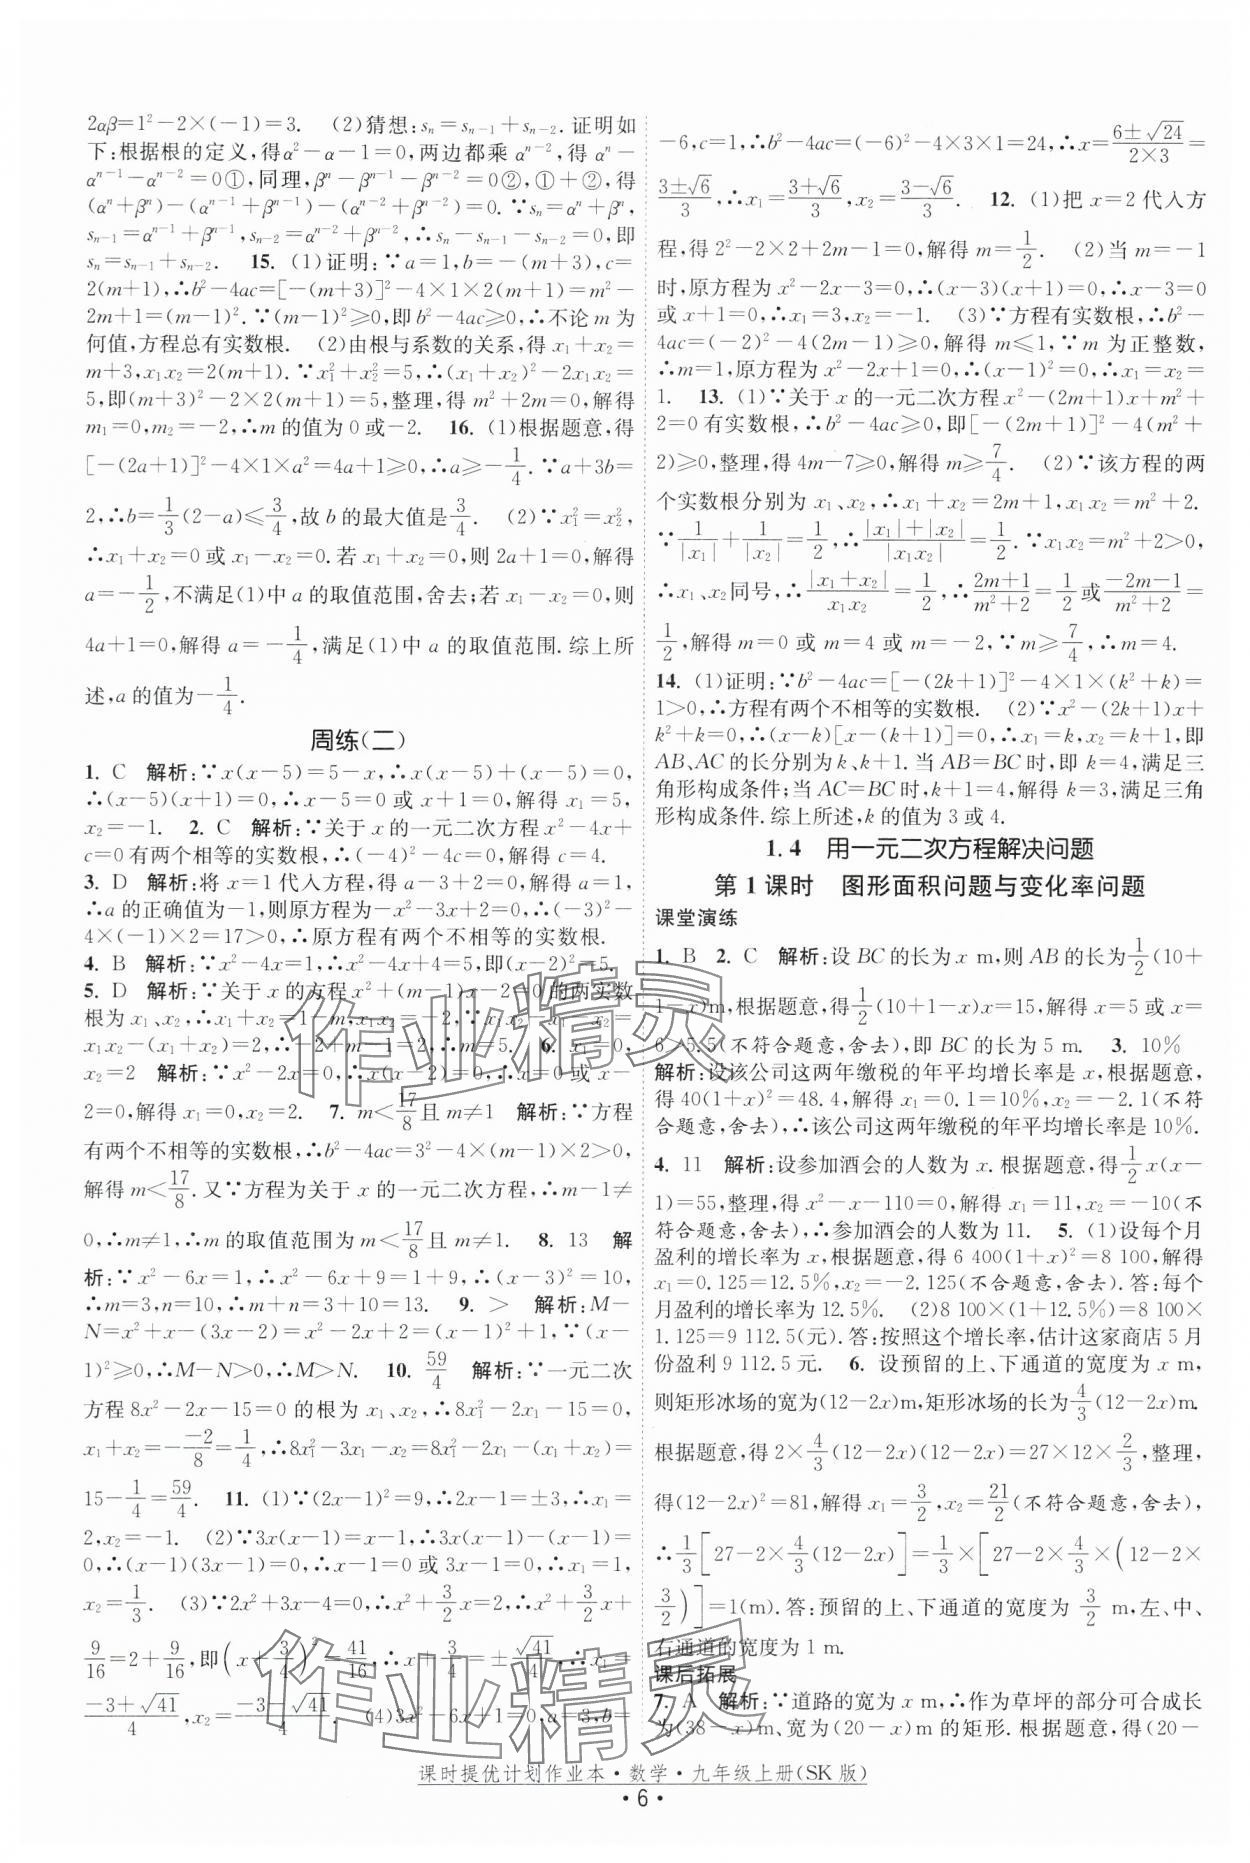 2αβ=1²-2×(-1)=3. (2)猜想:sₙ=sₙ₋₁+sₙ₋₂.证明如
下:根据根的定义,得α²-α-1=0,两边都乘 αⁿ⁻²,得 αⁿ-
αⁿ⁻¹-αⁿ⁻²=0①,同理,βⁿ-βⁿ⁻¹-βⁿ⁻²=0②,①+②,得
(αⁿ+βⁿ)-(αⁿ⁻¹+βⁿ⁻¹)-(αⁿ⁻²+βⁿ⁻²)=0.∵sₙ=αⁿ+βⁿ,
sₙ₋₁=αⁿ⁻¹+βⁿ⁻¹,sₙ₋₂=αⁿ⁻²+βⁿ⁻²,∴sₙ-sₙ₋₁-sₙ₋₂=0,即
sₙ=sₙ₋₁+sₙ₋₂. 15. (1)证明:∵a=1,b=-(m+3),c=
2(m+1),∴b²-4ac=[-(m+3)]²-4×1×2(m+1)=m²-
2m+1=(m-1)².∵(m-1)²≥0,即b²-4ac≥0,∴不论m为
何值,方程总有实数根. (2)由根与系数的关系,得 x₁+x₂=
m+3,x₁x₂=2(m+1).∵x₁²+x₂²=5,∴(x₁+x₂)²-2x₁x₂=
5,即(m+3)²-2×2(m+1)=5,整理,得 m²+2m=0,解得
m₁=0,m₂=-2,∴m的值为0或-2. 16. (1)根据题意,得
[-(2a+1)]²-4×1×a²=4a+1≥0,∴a≥-1/4.∵a+3b=
2,∴b=1/3(2-a)≤3/4,故 b 的最大值是3/4. (2)∵x₁²=x₂²,
∴x₁+x₂=0或x₁-x₂=0.若 x₁+x₂=0,则 2a+1=0,解得
a=-1/2,不满足(1)中a的取值范围,舍去;若 x₁-x₂=0,则
4a+1=0,解得 a=-1/4,满足(1)中 a 的取值范围.综上所
述,a的值为-1/4.
周练(二)
1. C 解析:∵x(x-5)=5-x,∴x(x-5)+(x-5)=0,
∴(x-5)(x+1)=0,∴x-5=0 或 x+1=0,解得 x₁=5,
x₂=-1. 2. C 解析:∵关于 x 的一元二次方程 x²-4x+
c=0有两个相等的实数根,∴(-4)²-4c=0,解得c=4.
3. D 解析:将 x=1代入方程,得 a-3+2=0,解得 a=1,
∴a的正确值为-1,则原方程为-x²-3x+2=0.∵(-3)²-
4×(-1)×2=17>0,∴原方程有两个不相等的实数根.
4. B 解析:∵x²-4x=1,∴x²-4x+4=5,即(x-2)²=5.
5. D 解析:∵关于x的方程x²+(m-1)x-2=0的两实数
根为x₁、x₂,∴x₁+x₂=1-m,x₁x₂=-2,∵x₁x₂-x₁-x₂=
x₁x₂-(x₁+x₂)=2,∴-2+m-1=2,∴m=5. 6. x₁=0,
x₂=2 解析:∵x²-2x=0,∴x(x-2)=0,∴x=0或x-
2=0,解得x₁=0,x₂=2. 7. m<17/8且m≠1 解析:∵方程
有两个不相等的实数根,∴b²-4ac=3²-4×(m-1)×2>0,
解得m<17/8.又∵方程为关于 x 的一元二次方程,∴m-1≠
0,∴m≠1,∴m的取值范围为m<17/8且m≠1. 8. 13 解
析:∵x²-6x=1,∴x²-6x+9=1+9,∴(x-3)²=10,
∴m=3,n=10,∴m+n=3+10=13. 9. > 解析:M-
N=x²+x-(3x-2)=x²-2x+2=(x-1)²+1,∵(x-
1)²≥0,∴M-N>0,∴M>N. 10. 59/4 解析:∵一元二次
方程8x²-2x-15=0 的根为 x₁、x₂,∴8x₁²-2x₁-15=0,
x₁+x₂=--2/8=1/4,∴8x₁²-3x₁-x₂=8x₁²-2x₁-(x₁+x₂)=
15-1/4=59/4. 11. (1)∵(2x-1)²=9,∴2x-1=±3,∴x₁=
2,x₂=-1. (2)∵3x(x-1)=x-1,∴3x(x-1)-(x-1)=
0,∴(x-1)(3x-1)=0,∴x-1=0或3x-1=0,∴x₁=1,
x₂=1/3. (3)∵2x²+3x-4=0,∴x²+3/2x=2,∴x²+3/2x+
9/16=2+9/16,即(x+3/4)²=41/16,∴x+3/4=±√41/4,∴x₁=
(-3+√41)/4,x₂=(-3-√41)/4. (4)3x²-6x+1=0,a=3,b=
-6,c=1,∴b²-4ac=(-6)²-4×3×1=24,∴x=(6±√24)/(2×3)=
(3±√6)/3,∴x₁=(3+√6)/3,x₂=(3-√6)/3. 12. (1)把 x=2 代入方
程,得2²-2×2+2m-1=0,解得 m=1/2. (2)当 m=-1
时,原方程为x²-2x-3=0,∴(x-3)(x+1)=0,∴x-3=0
或x+1=0,∴x₁=3,x₂=-1. (3)∵方程有实数根,∴b²-
4ac=(-2)²-4(2m-1)≥0,解得 m≤1,∵m 为正整数,
∴m=1,原方程为 x²-2x+1=0,∴(x-1)²=0,∴x₁=x₂=
1. 13. (1)∵关于 x 的一元二次方程x²-(2m+1)x+m²+
2=0有实数根,∴b²-4ac≥0,即[-(2m+1)]²-4(m²+
2)≥0,整理,得 4m-7≥0,解得 m≥7/4. (2)∵该方程的两
个实数根分别为 x₁、x₂,∴x₁+x₂=2m+1,x₁x₂=m²+2.
∵1/|x₁|+1/|x₂|=1/2,∴(|x₁|+|x₂|)/|x₁x₂|=1/2.∵x₁x₂=m²+2>0,
∴x₁、x₂同号,∴|x₁+x₂|/x₁x₂=1/2,∴(2m+1)/(m²+2)=1/2或(-2m-1)/(m²+2)=
1/2,解得 m=0 或 m=4 或 m=-2,∵m≥7/4,∴m=4.
14. (1)证明:∵b²-4ac=[-(2k+1)]²-4×1×(k²+k)=
1>0,∴方程有两个不相等的实数根. (2)∵x²-(2k+1)x+
k²+k=0,∴(x-k)[x-(k+1)]=0,∴x₁=k,x₂=k+1,即
AB、AC 的长分别为k、k+1.当 AB=BC时,即 k=4,满足三
角形构成条件;当AC=BC时,k+1=4,解得 k=3,满足三角
形构成条件.综上所述,k的值为3或4.
1.4 用一元二次方程解决问题
第1课时 图形面积问题与变化率问题
课堂演练
1. B 2. C 解析:设BC的长为x m,则AB的长为1/2(10+
1-x)m,根据题意,得1/2(10+1-x)x=15,解得 x=5或x=
6>5.5(不符合题意,舍去),即BC的长为5 m. 3. 10%
解析:设该公司这两年缴税的年平均增长率是 x,根据题意,
得40(1+x)²=48.4,解得x₁=0.1=10%,x₂=-2.1(不符
合题意,舍去),∴该公司这两年缴税的年平均增长率是10%.
4. 11 解析:设参加酒会的人数为 x.根据题意,得1/2x(x-
1)=55,整理,得 x²-x-110=0,解得 x₁=11,x₂=-10(不
符合题意,舍去),∴参加酒会的人数为11. 5. (1)设每个月
盈利的增长率为 x,根据题意,得6 400(1+x)²=8 100,解得
x₁=0.125=12.5%,x₂=-2.125(不合题意,舍去).答:每个
月盈利的增长率为12.5%. (2)8 100×(1+12.5%)=8 100×
1.125=9 112.5(元).答:按照这个增长率,估计这家商店5月
份盈利9 112.5元. 6. 设预留的上、下通道的宽度为 x m,
则矩形冰场的宽为(12-2x)m,矩形冰场的长为4/3(12-2x)m.
根据题意,得2×4/3(12-2x)(12-2x)=27×12×2/3,整理,
得(12-2x)²=81,解得 x₁=3/2,x₂=21/2(不符合题意,舍去),
∴1/3[27-2×4/3(12-2x)]=1/3×[27-2×4/3×(12-2×
3/2)]=1(m).答:预留的上、下通道的宽度为 3/2 m,左、中、
右通道的宽度为1 m.
课后拓展
7. A 解析:∵道路的宽为x m,∴作为草坪的部分可合成长
为(38-x)m、宽为(20-x)m的矩形.根据题意,得(20-
作业精灵
作业精灵
课时提优计划作业本·数学·九年级上册(SK版)
·6·